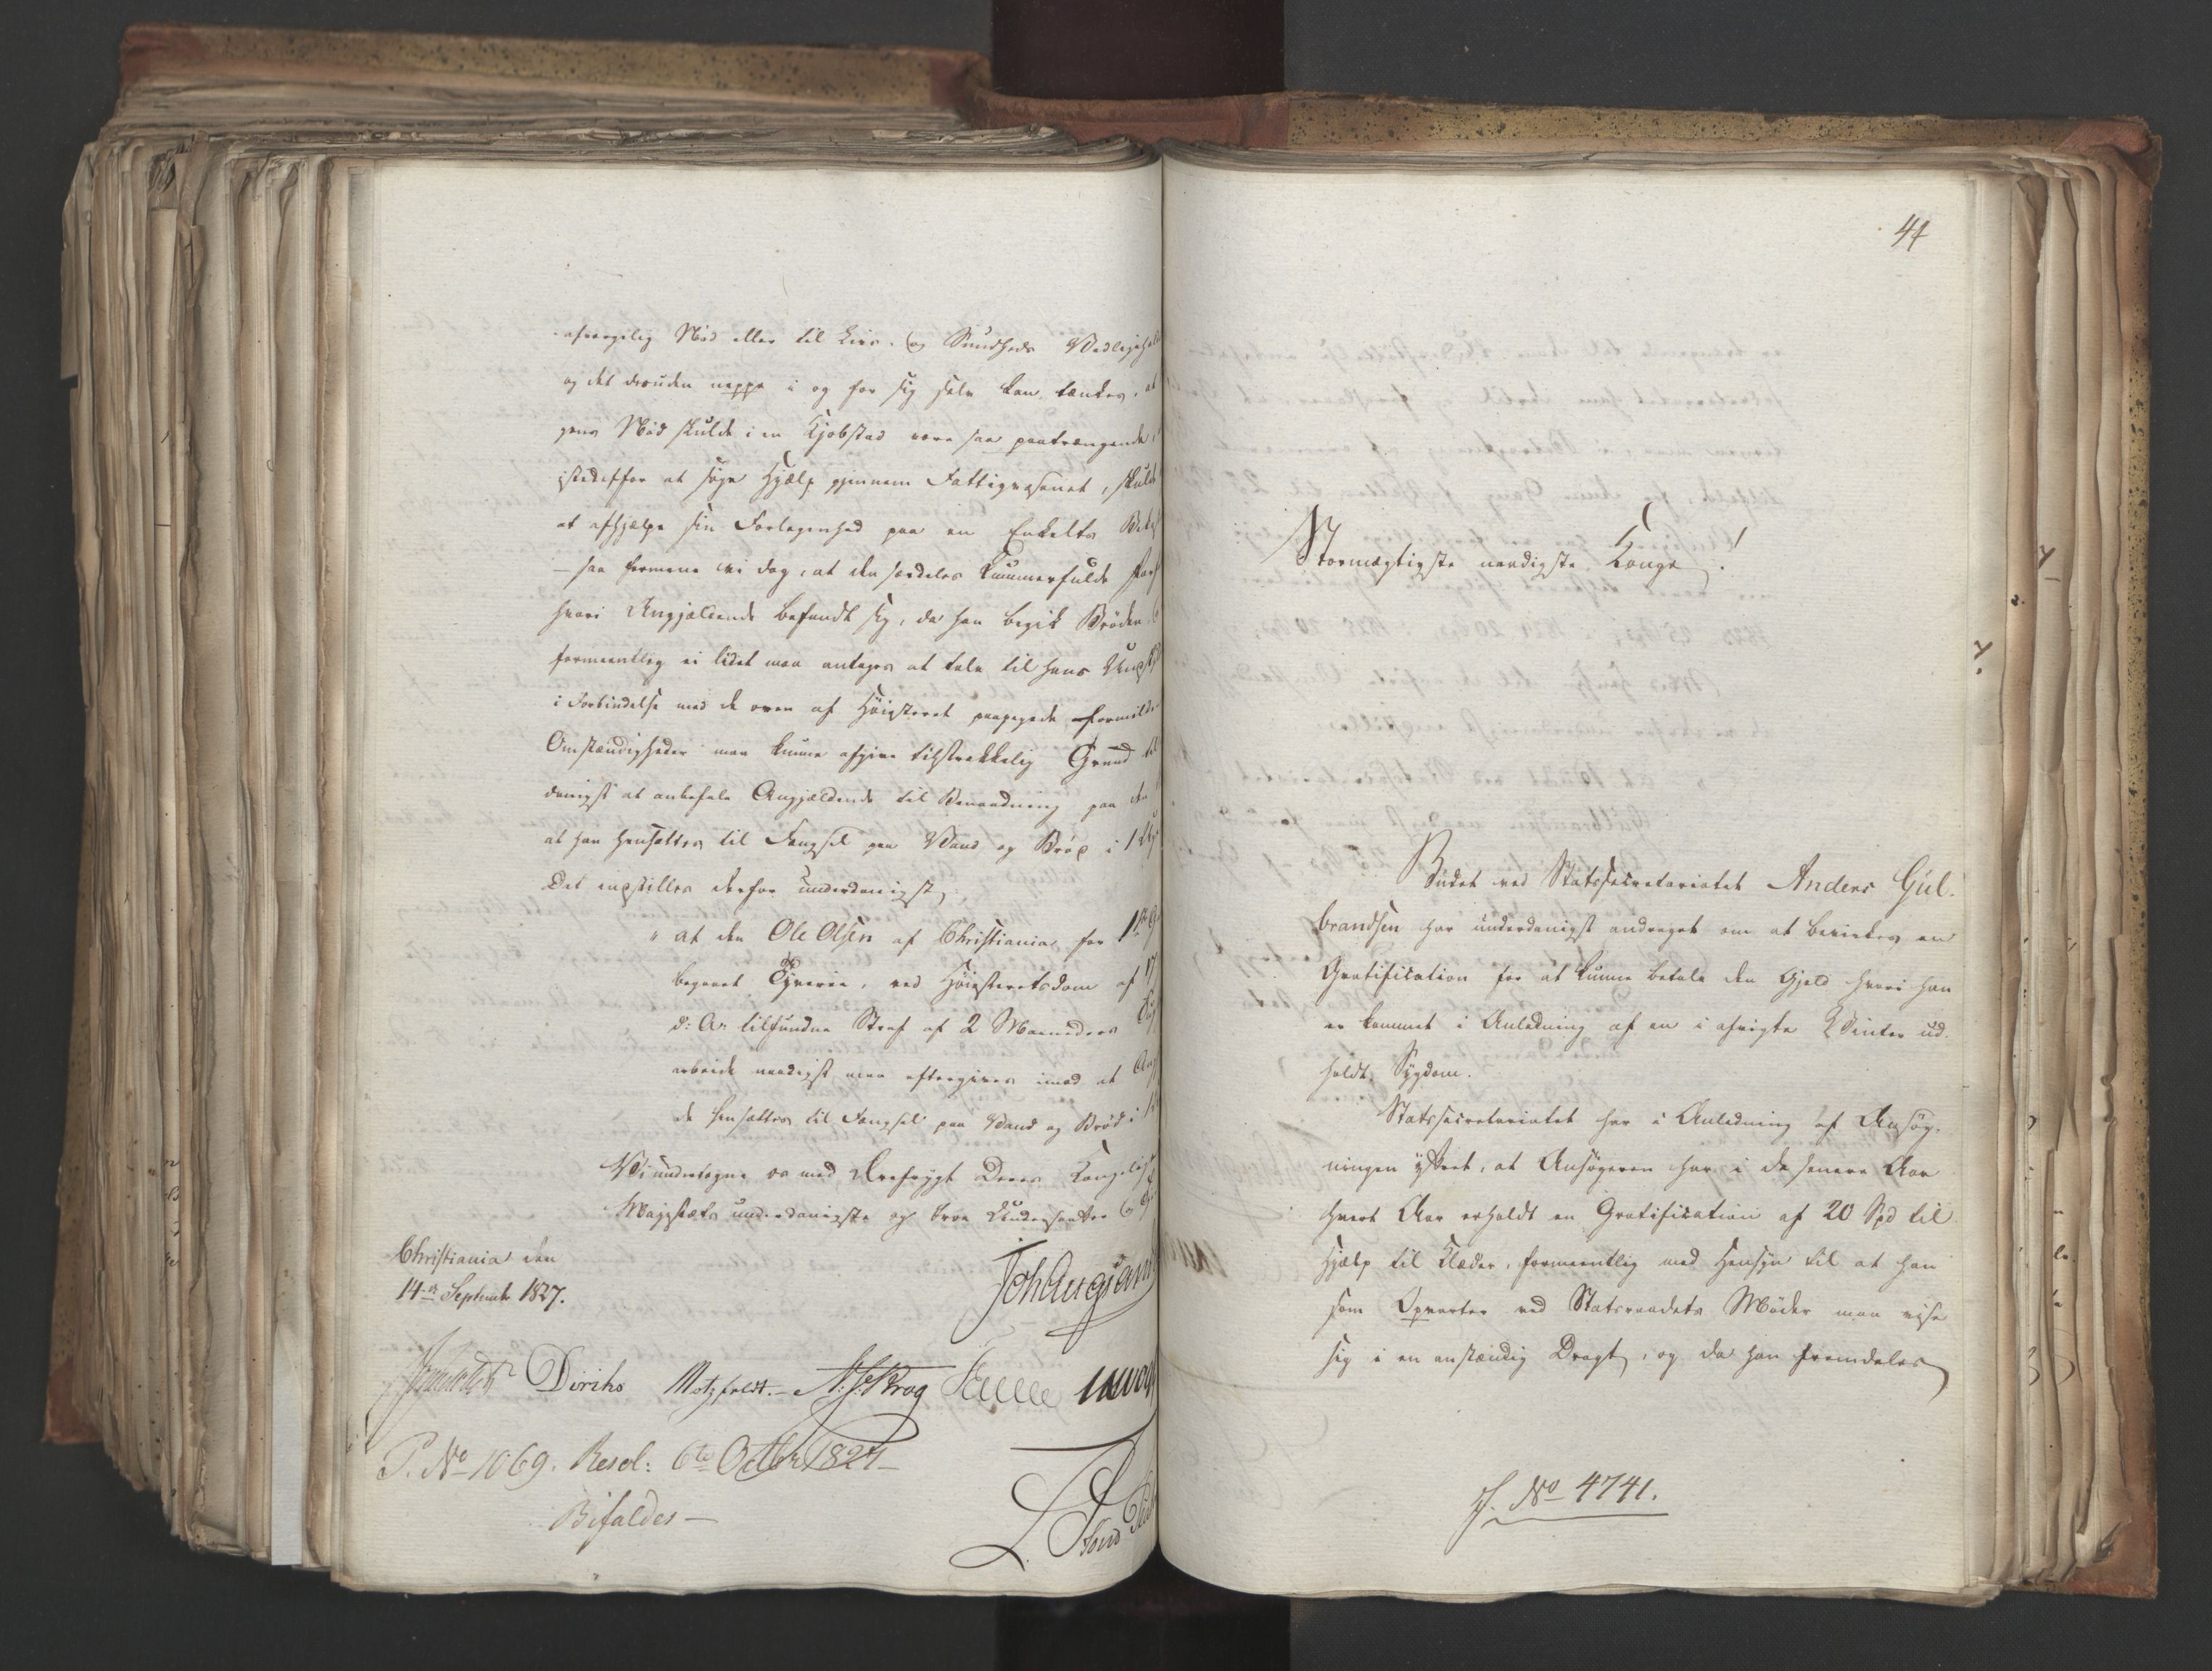 afvergelig Nød eller til Livs- og Sundheds Vedligehol
og det desuden neppe i og for sig selv kan tænkes, at
gens Nød skulde i en Kjøbstad være saa paatrængende,
istedetfor at søge Hjælp gjennem Fattigvæsenet, skulde
at afhjælpe sin Forlegenhed paa en Enkelts Bek
– saa formene vi dog, at den særdeles kummerfulde
hvori Angjældende befandt sig, da han begik Brøden
formeentlig ei lidet maa antages at tale til hans
i Forbindelse med de oven af Høiesteret paapegede formilde
Omstændigheder maa kunne afgive tilstrækkelig Grund til
danigst at anbefale Angjældende til Benaadning paa den
at han hensættes til Fængsel paa Vand og Brød i
Det indstilles derfor underdanigst,
" at den Ole Olsen af Christiania for 1ste G
begaaet Tyverie, ved Høiesteretsdom af 17
d: A: tilfundne Straf af 2 Maaneders
arbeide naadigst maa eftergives imod at Ang
de hensættes til Fængsel paa Vand og Brød i
Vi undertegne os med Ærefrygt Deres Kongelige
Majestæts underdanigste og troe Undersaatter
Christiania den
14de Septembr 1827.
Diriks Motzfeldt. Krog
P. No 1069. Resol: 6te Octbr 1827
Bifaldes –
44
Stormægtigste naadigste Konge!
Budet ved Statssecretariatet Anders Gul-
brandsen har underdanigst andraget om at bevirkes en
Gratification for at kunne betale den Gjeld hvori han
er kommet i Anledning af en i afvigte Vinter ud-
holdt Sygdom.
Statssecretariatet har i Anledning af Ansøg-
ningen yttret, at Ansøgeren har i de senere Aar
hvert Aar erholdt en Gratification af 20 Spd til
Hjælp til Klæder, formeentlig med Hensyn til at han
som Opvarter ved Statsraadets Møder maa vise
sig i en anstændig Dragt, og da han fremdeles
J. No 4741.